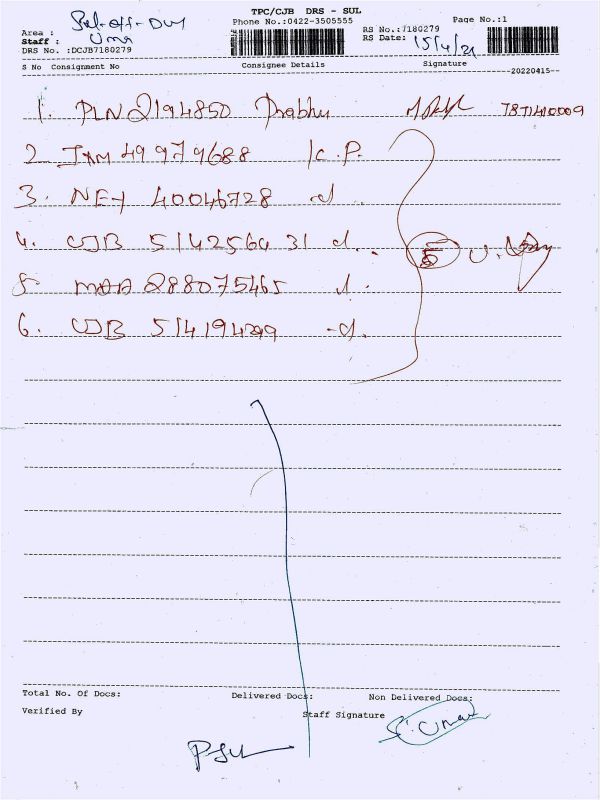 TPC/CJB DRS - SUL
Phone No.:0422-3505555
Page No.:1
Area : Sul-off-Duy
Staff : Uma
DRS No. :DCJB7180279
RS No.:7180279
RS Date: 15/4/21
S No Consignment No Consignee Details Signature
--20220415--
1. PLN 2194850 Prabhu 7871410009
2. JAM 49979688 K.P.
3. NEY 40046728 d.
4. CJB 514256431 d.
5. MAA 288075465 d.
6. CJB 514194299 d.
5
Total No. Of Docs: Delivered Docs: Non Delivered Docs:
Verified By Staff Signature S. Uma